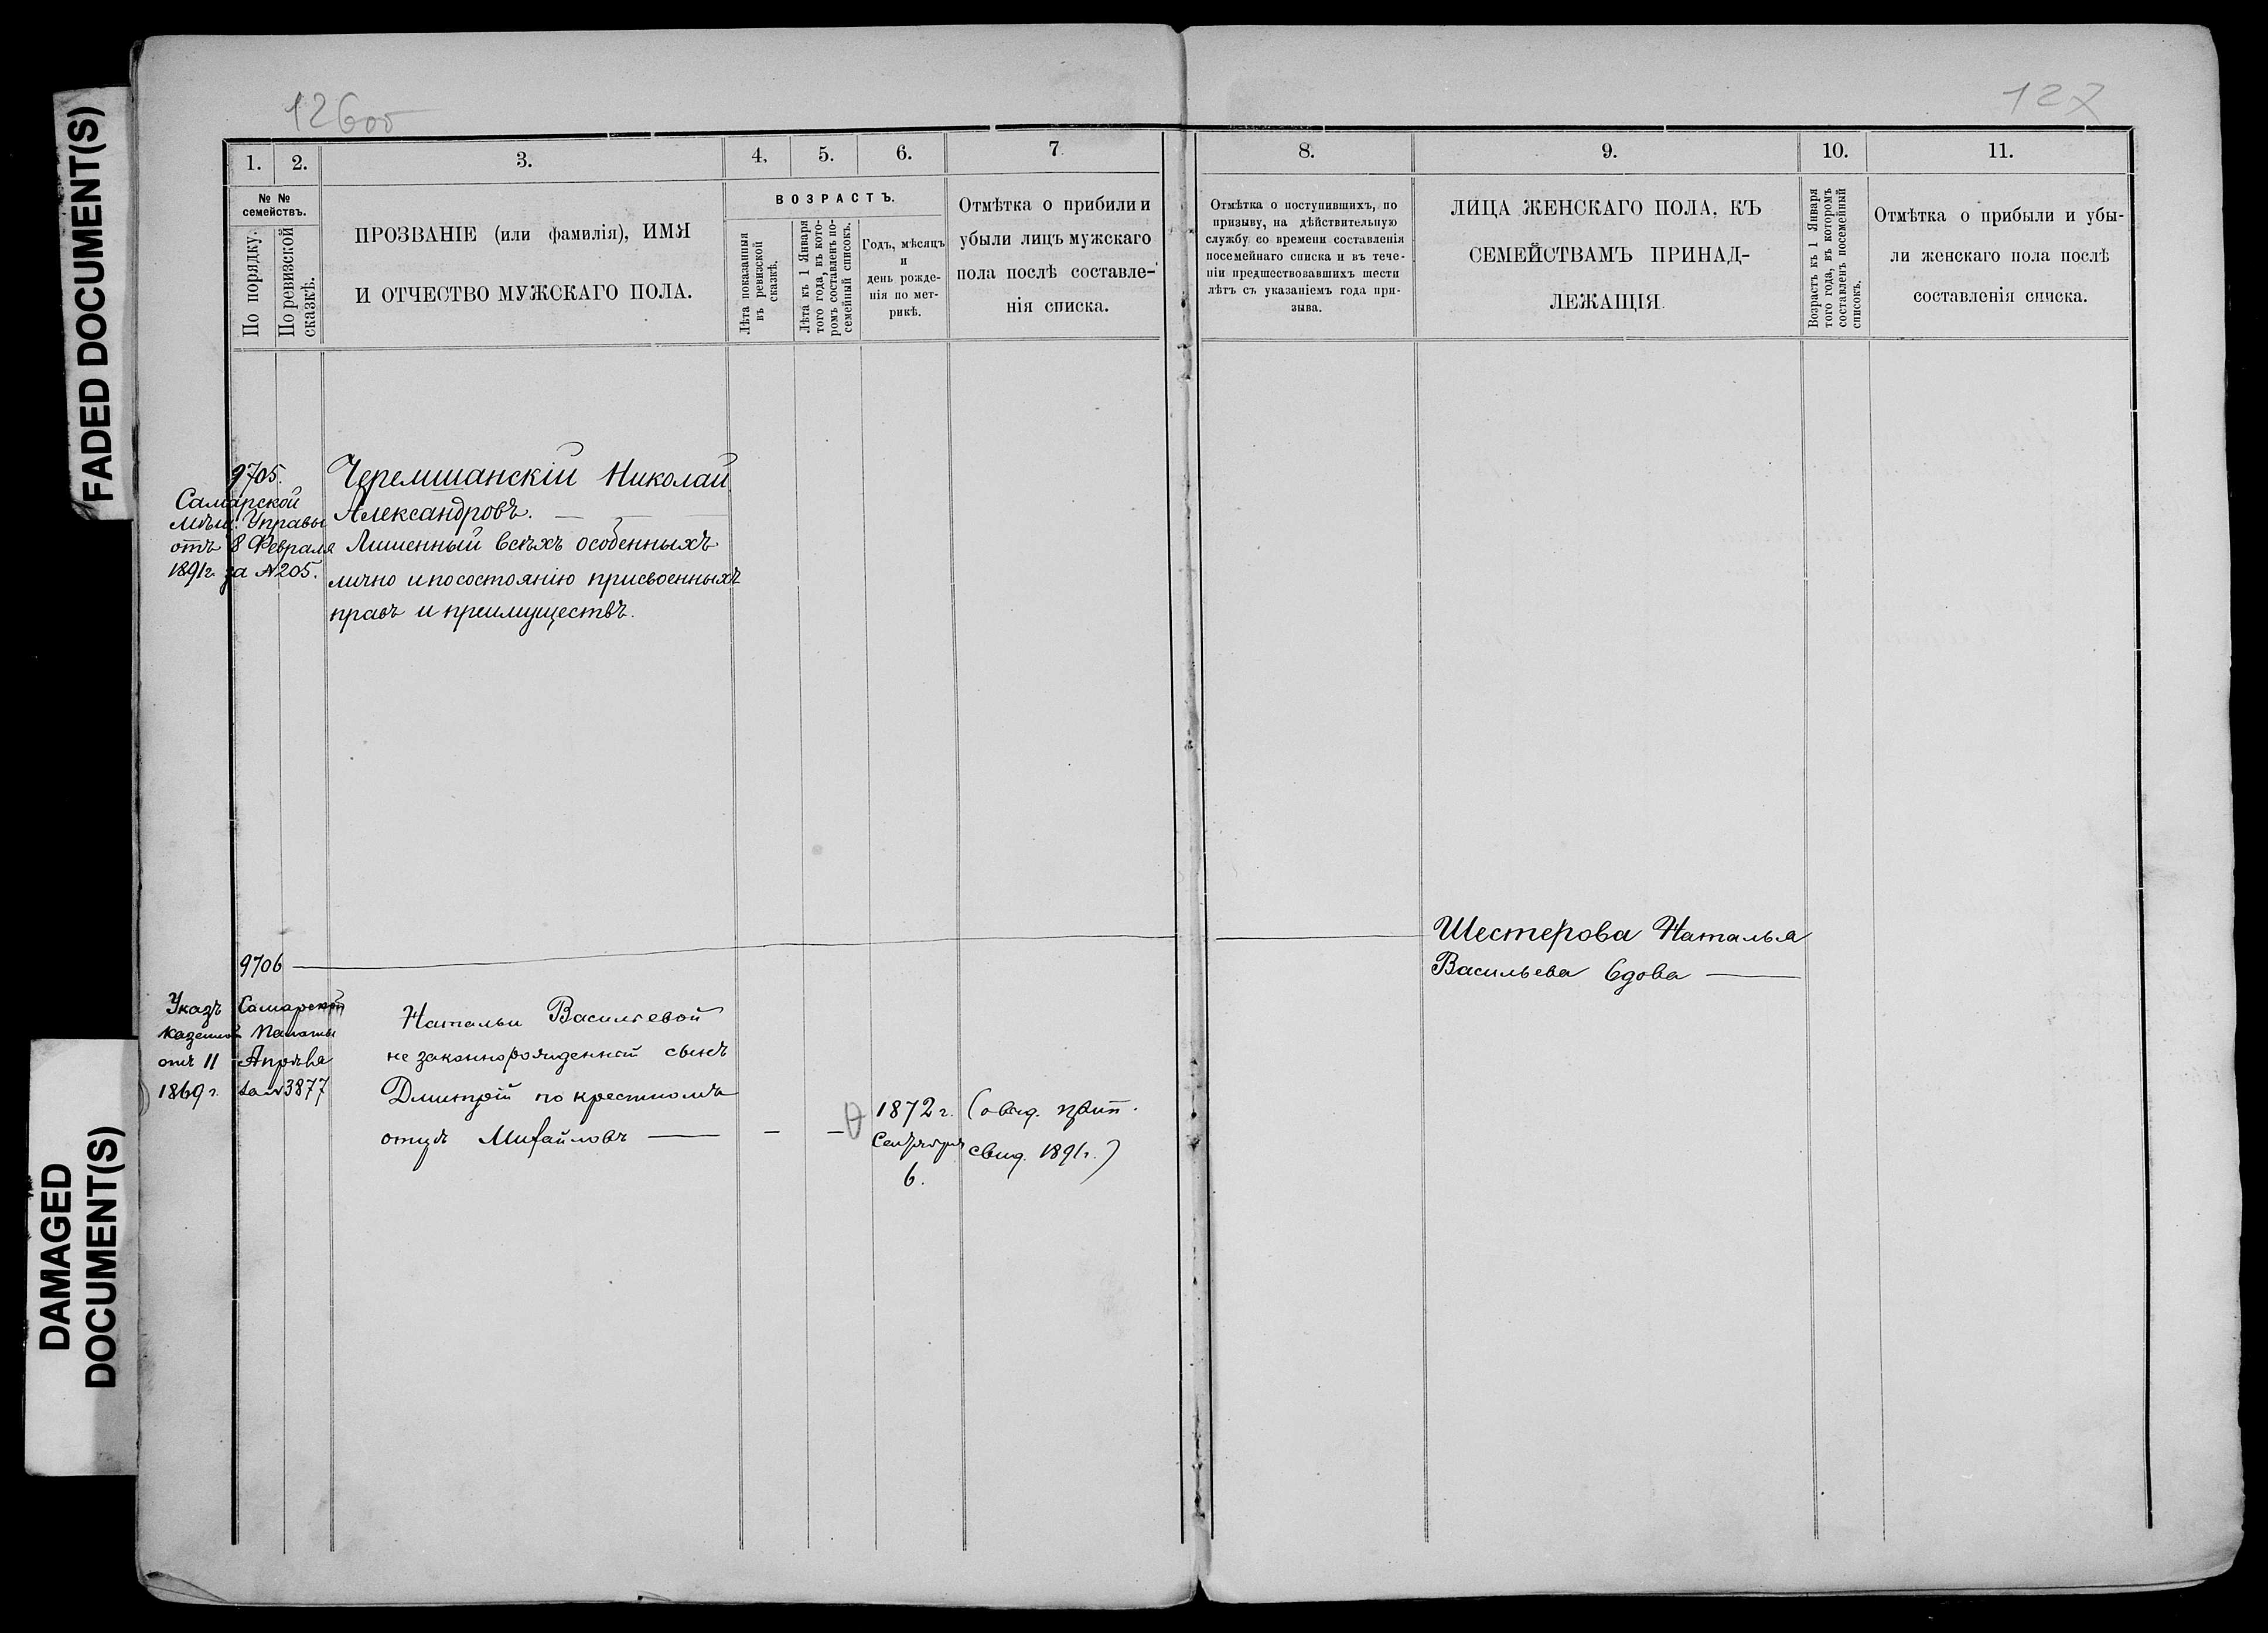 FADED DOCUMENT(S)
DAMAGED
DOCUMENT(S)
126об
127
1.
2.
3.
4.
5.
6.
7
№ №
семействъ.
По порядку.
По ревизской
сказкѣ.
ПРОЗВАНІЕ (или фамилія), ИМЯ
И ОТЧЕСТВО МУЖСКАГО ПОЛА.
ВОЗРАСТЪ.
Лѣта показанныя
въ ревизской
сказкѣ.
Лѣта къ 1 Января
того года, въ кото-
ромъ составленъ по-
семейный списокъ.
Годъ, мѣсяцъ
и
день рожде-
нія по мет-
рикѣ.
Отмѣтка о прибыли и
убыли лицъ мужскаго
пола послѣ составле-
нія списка.
8.
9.
10.
11.
Отмѣтка о поступившихъ, по
призыву, на дѣйствительную
службу со времени составленія
посемейнаго списка и въ тече-
ніи предшествовавшихъ шести
лѣтъ съ указаніемъ года при-
зыва.
ЛИЦА ЖЕНСКАГО ПОЛА, КЪ
СЕМЕЙСТВАМЪ ПРИНАД-
ЛЕЖАЩІЯ.
Возрастъ къ 1 Января
того года, въ которомъ
составленъ посемейный
списокъ.
Отмѣтка о прибыли и убы-
ли женскаго пола послѣ
составленія списка.
9705.
Самарской
мѣщ. Управы
отъ 8 Февраля
1891г. за №205.
Черемшанскій Николай
Александровъ.
Лишенный всѣхъ особенныхъ
лично и по состоянію присвоенныхъ
правъ и преимуществъ.
9706
Указъ Самарской
Казенной Палаты
отъ 11 Апрѣля
1869 г. за №3877
Натальи Васильевой
не законнорожденный сынъ
Дмитрій по крестному
отцу Михайловъ
1872 г.
Сентября
6.
свид. 1891г.)
Шестерова Наталья
Васильева вдова